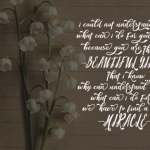 i could not understand
what can i do for you
because you are the
BEAUTIFUL
that i know
why can understand
what can i do for
we have to find a
MIRACLE